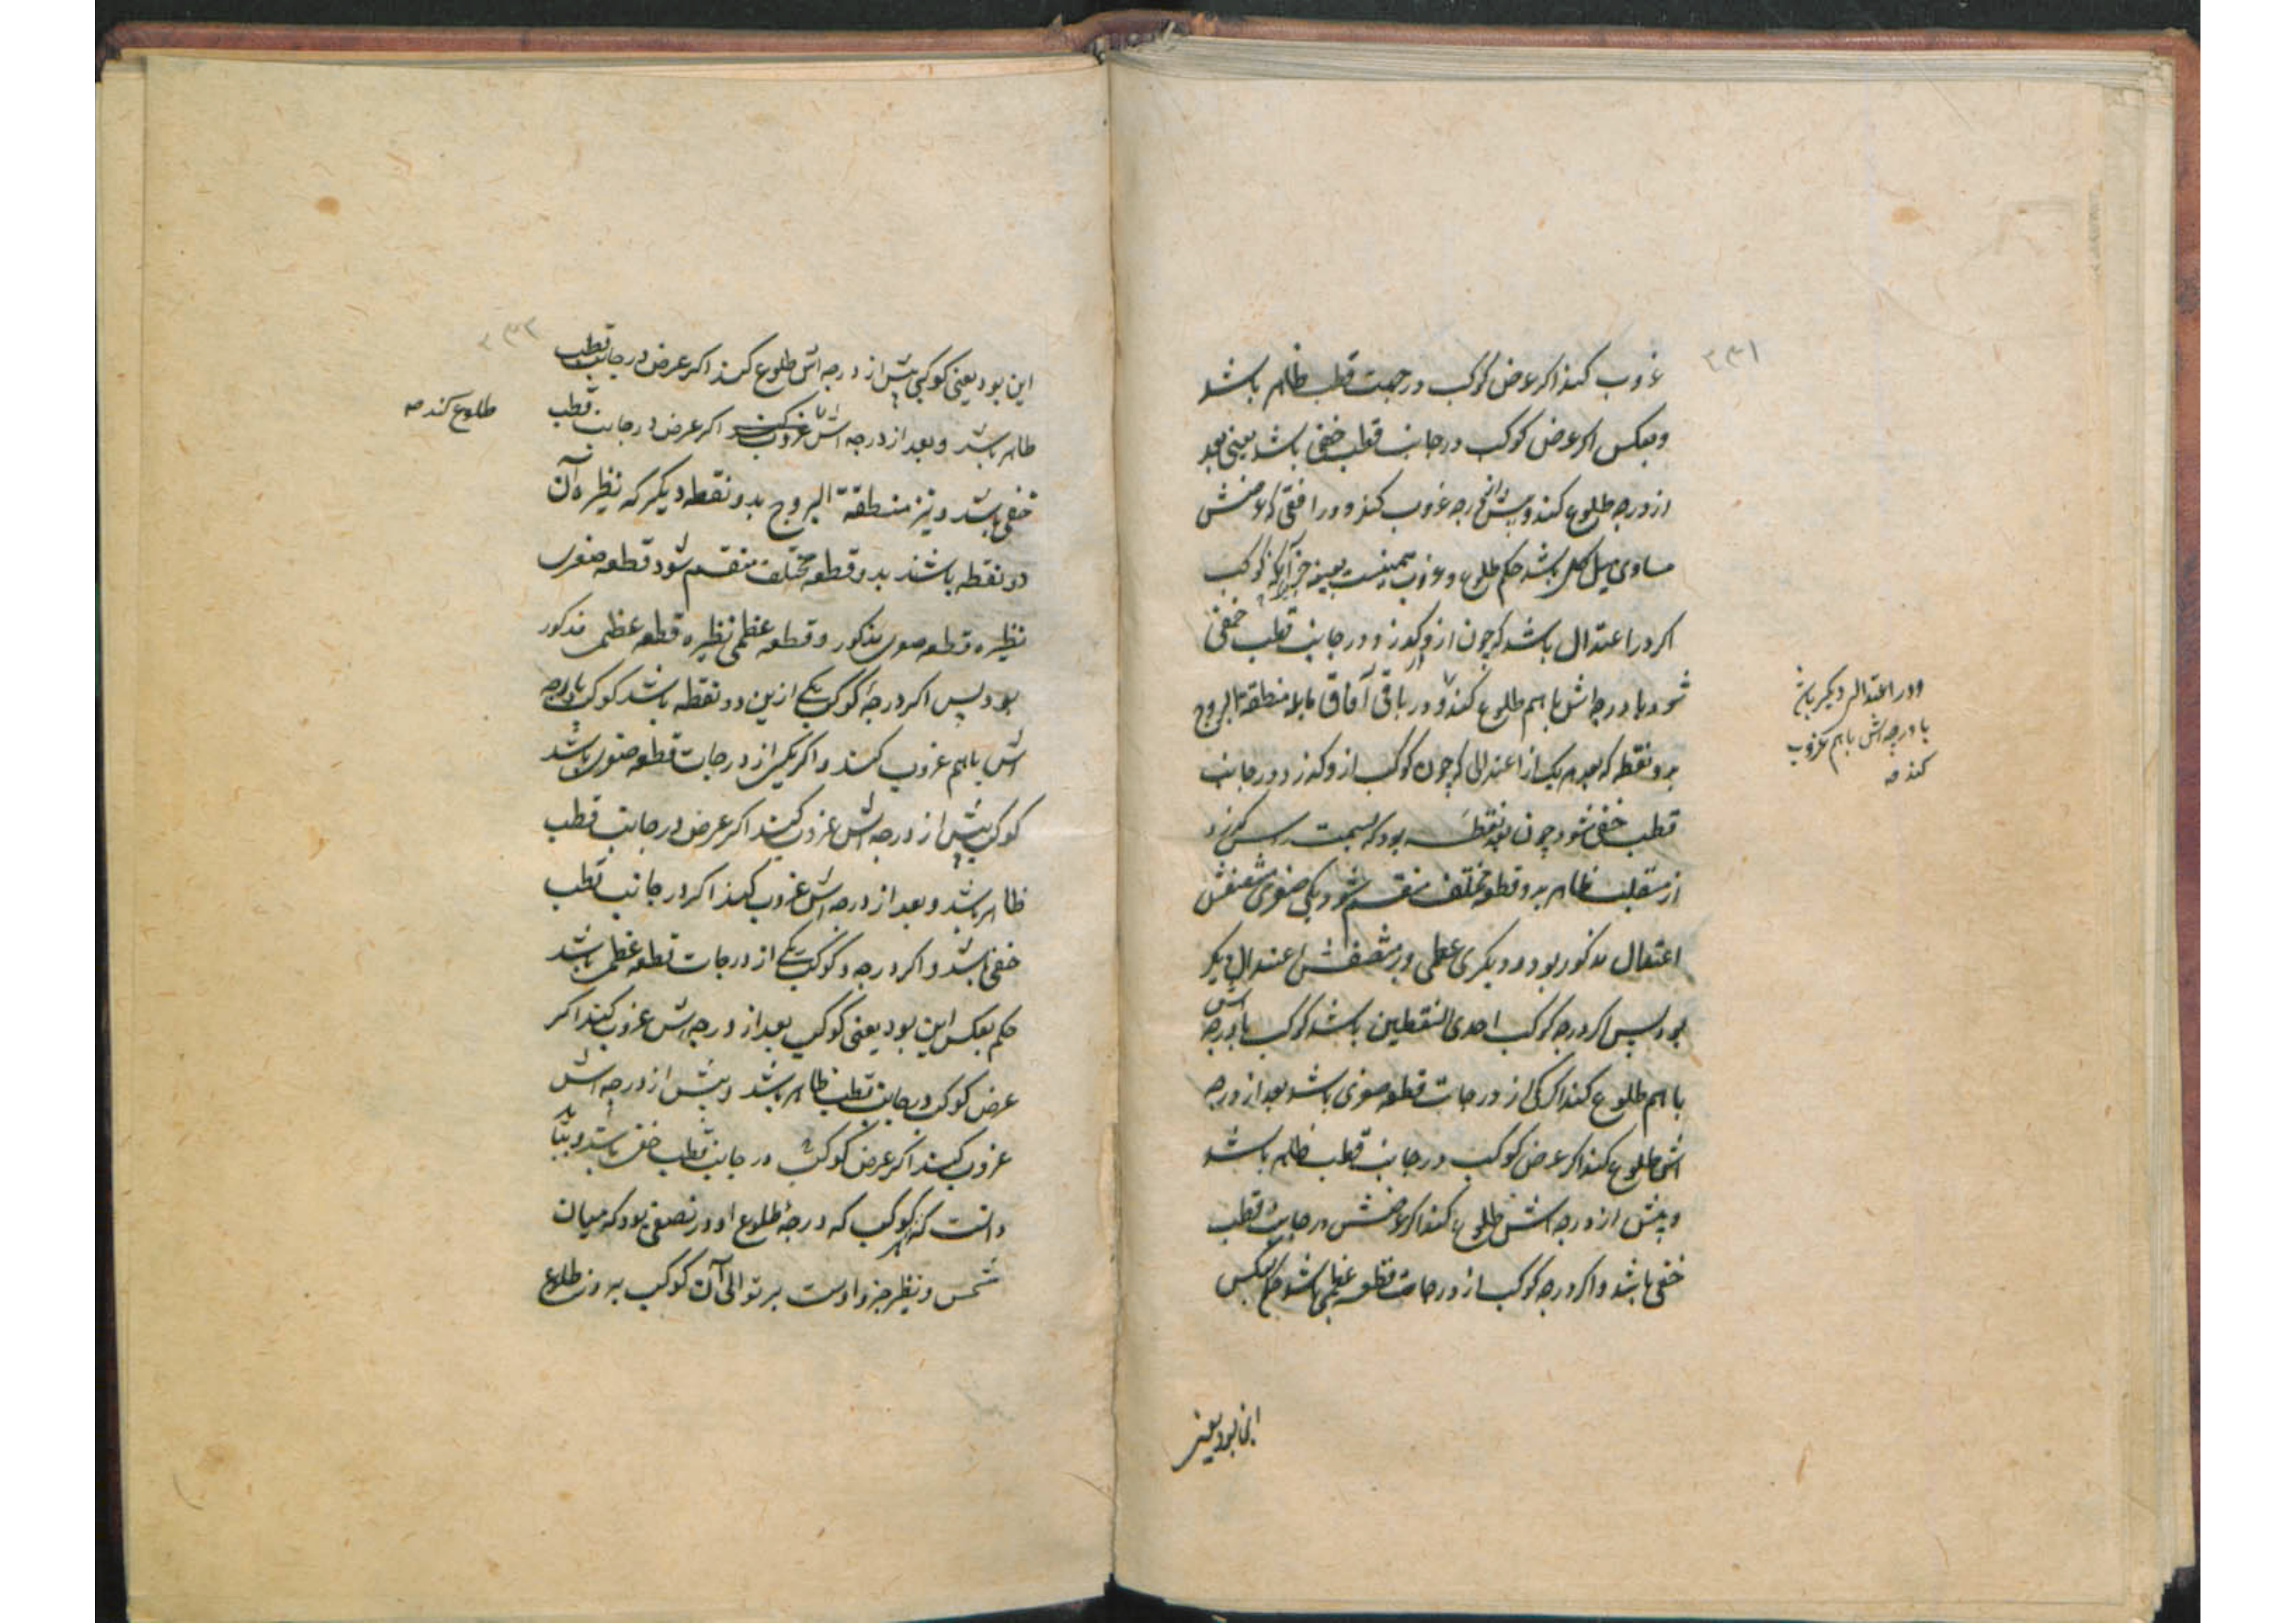 ۲۳۱
غروب کند اکر عرض کوکب در جهت قطب ظاهر باشد
وبعکس اکر عرض کوکب در جانب قطب خفی باشد یعنی بعد
از درجه طلوع کند و پیش از درجه غروب کند و در افقی که عرضش
مساوی میل کلی باشد حکم طلوع و غروب همینست بعینه جز آنکه کوکب
اکر در اعتدال باشد که چون ازو کذرد در جانب قطب خفی
شود با درجه اش باهم طلوع کند و در باقی آفاق مایله منطقة البروج
بدو نقطه که بعد هر یک از اعتدالی که چون کوکب ازو کذرد در جانب
قطب خفی شود چون بعد نقطه بود که بسمت راس کذرد
از منقلب ظاهر بدو قطعه مختلف منقسم شود یکی صغری منتصفش
اعتدال مذکور بود و دیکری عظمی و منتصفش اعتدال دیکر
بود پس اکر درجه کوکب احدی النقطتین باشد کوکب با درجه اش
باهم طلوع کند اکر یکی از درجات قطعه صغری باشد بعد از درجه
اش طلوع کند اکر عرض کوکب در جانب قطب ظاهر باشد
و پیش از درجه اش طلوع کند اکر عرضش در جانب قطب
خفی باشد و اکر درجه کوکب از درجات قطعه عظمی باشد حکم بعکس
ودر اعتدال دیکر باشد
با درجه اش باهم غروب
کند صه
این بود یعنی
۲۳۲
این بود یعنی کوکب پیش از درجه اش طلوع کند اکر عرض در جانب قطب
ظاهر باشد و بعد از درجه اش غروب کند اکر عرض در جانب قطب
طلوع کند صه
خفی باشد و نیز منطقة البروج بدو نقطه دیکر که نظیره آن
دو نقطه باشند بدو قطعه مختلف منقسم شود قطعه صغری
نظیره قطعه صغری مذکور و قطعه عظمی نظیره قطعه عظمی مذکور
بود پس اکر درجۀ کوکب یکی ازین دو نقطه باشد کوکب با درجه
اش باهم غروب کند و اکر یکی از درجات قطعه صغری باشد
کوکب پیش از درجه اش غروب کند اکر عرض در جانب قطب
ظاهر باشد و بعد از درجه اش غروب کند اکر در جانب قطب
خفی باشد و اکر درجه و کوکب یکی از درجات قطعه عظمی باشد
حکم بعکس این بود یعنی کوکب بعد از درجه اش غروب کند اکر
عرض کوکب در جانب قطب ظاهر باشد و پیش از درجه اش
غروب کند اکر عرض کوکب در جانب قطب خفی باشد و بباید
دانست که هر کوکب که درجۀ طلوع او در نصفی بود که میان
شمس و نظیر جزو اوست بر توالی آن کوکب بروز طلوع